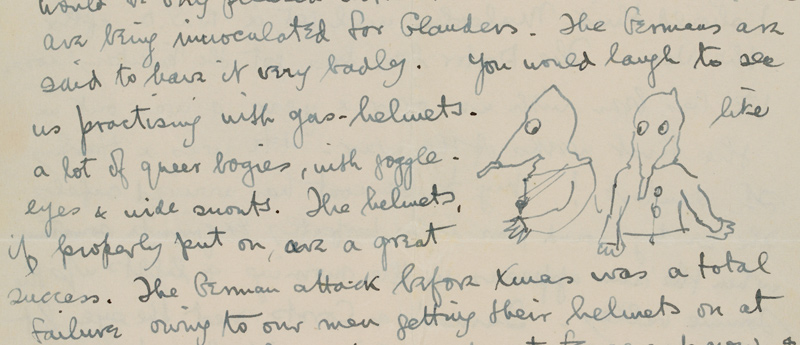 would be very
are being innoculated for Glanders. The Germans are
said to have it very badly. You would laugh to see
us practising with gas-helmets. like
a lot of queer bogies, with goggle-
eyes & wide snouts. The helmets,
if properly put on, are a great
success. The German attack before Xmas was a total
failure owing to our men getting their helmets on at